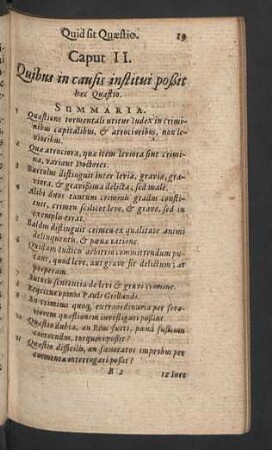 Quid sit Quæstio. 19
Caput II.
Quibus in causis institui possit
hec Quæstio.
SUMMARIA.
Quæstione tormentali utitur Iudex in crimi-
nibus capitalibus, & atrocioribus, non le-
vioribus.
Quæ atrociora, quæ item leviora sint crimi-
na, variant Doctores.
Bartolus distinguit inter levia, gravia, gra-
viora, & gravissima delicta, sed male.
Alibi duos tantum criminũ gradus consti-
tuit, crimen scilicet leve, & grave, sed in
exemplo errat.
Baldm distinguit crimen ex qualitate animi
delinquentis, & pœnæ ratione.
Quidam Iudicis arbitrio committendum pu-
tant, quod leve, aut grave sit delictum; at
perperam.
Autoris sententia de levi & gravi crimine.
Reijcitur opinio Pauli Grillandi.
An crimina quoq, extraordinaria per seve-
riorem quæstionem investigari possint.
Quæstio dubia, an Reus furti, pœnâ fustium
coërcendus, torqueri possit?
Quæstio difficilis, an fœnerator improbus per
tormenta interrogari possit?
B 2 12 Iure